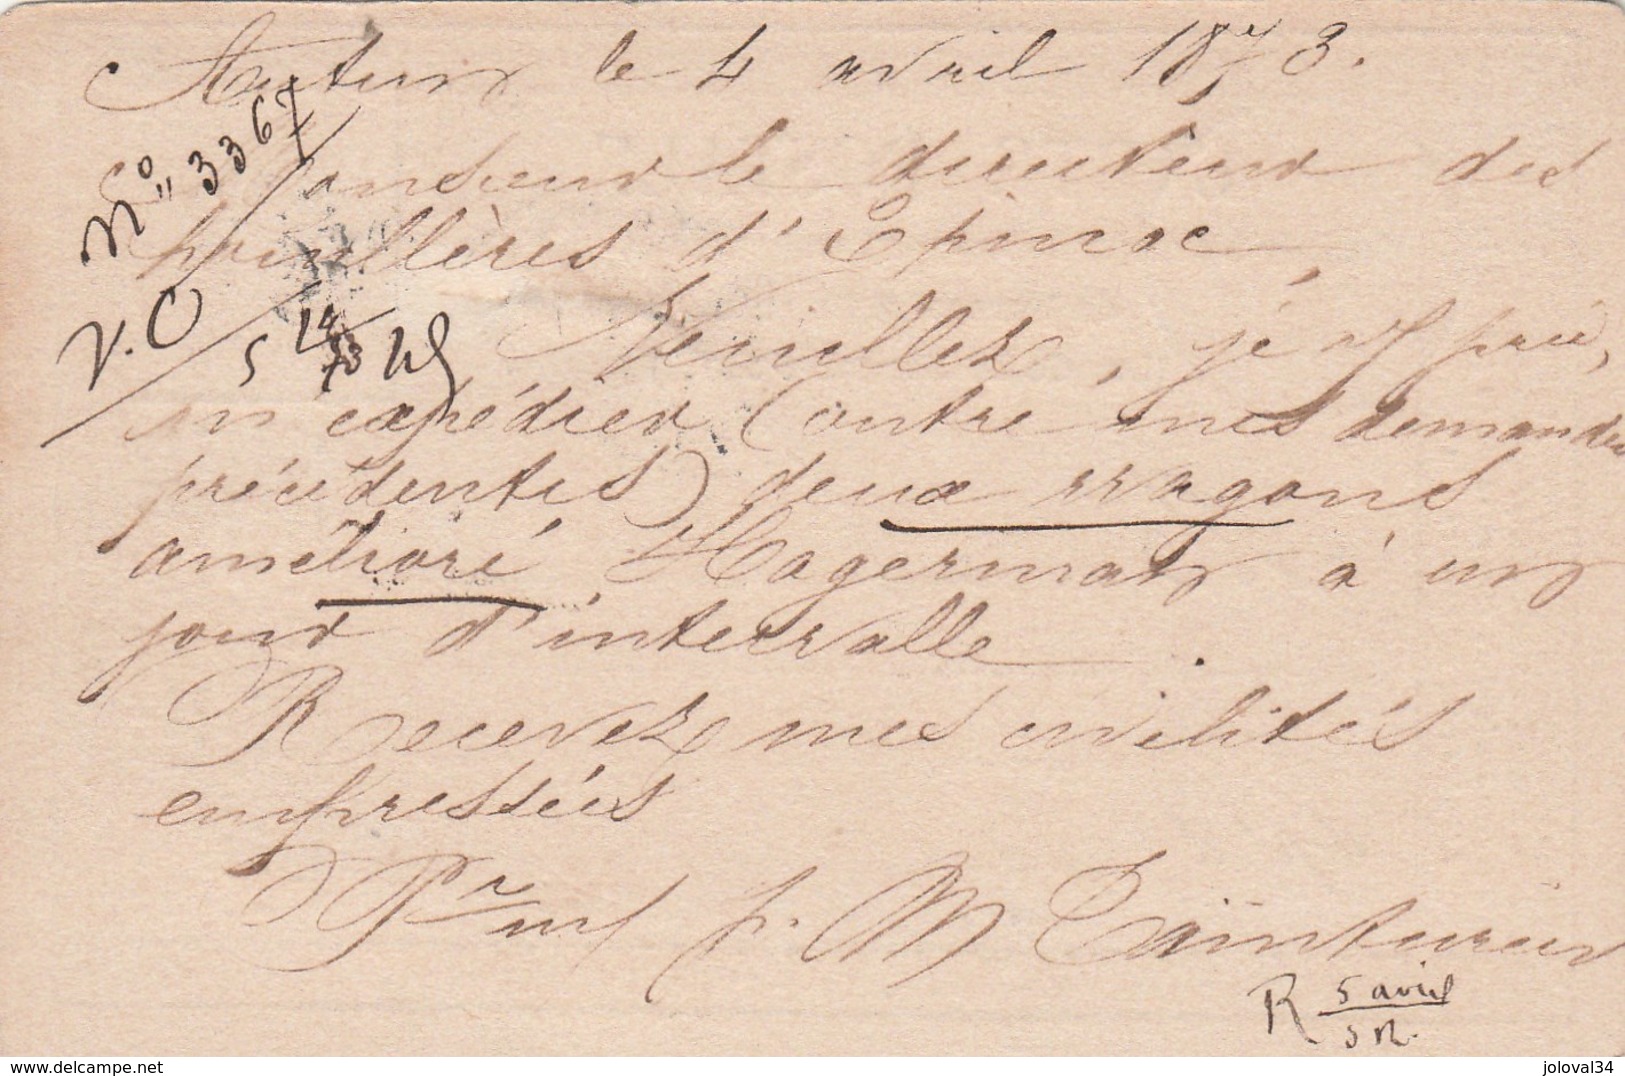 Autun le 4 avril 1873.
N° 3367
Monsieur le directeur des
houillères d'Epinac,
V. O
5 24/73
Veuillez, je vs prie,
m'expédier (outre mes demandes
précédentes) deux wagons
amélioré Hagerman à un
jour d'intervalle.
Recevez mes civilités
empressées
Pr M Tainturier
R 5 avril
delcampe.net
joloval34